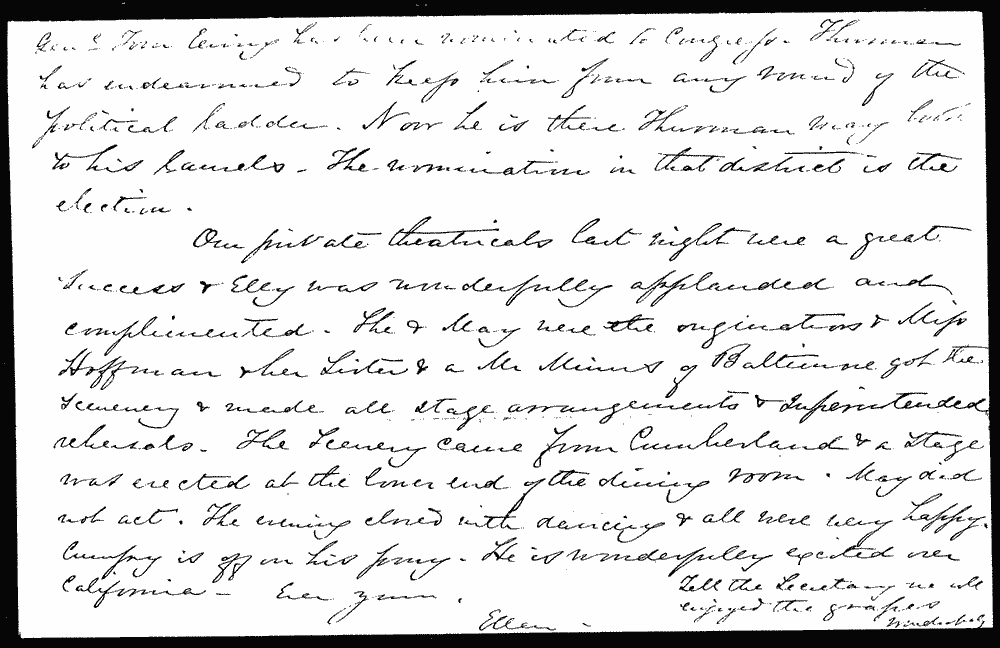 Genl Tom Ewing has been nominated to Congress. Thurman
has endeavored to keep him from any round of the
political ladder. Now he is there Thurman may look
to his laurels. The nomination in that district is the
election.
Our private theatricals last night were a great
success & Elly was wonderfully applauded and
complimented. She & May were the originators & Miss
Hoffman & her sister & a Mr Mimms of Baltimore got the
scenery & made all stage arrangements & superintended
rehersals. The scenery came from Cumberland & a stage
was erected at the lower end of the dining room. May did
not act. The evening closed with dancing & all were very happy.
Cumpy is off on his pony. He is wonderfully excited over
California - Ever yours,
Ellen -
Tell the Secretary we all
enjoyed the grapes
wonderfully